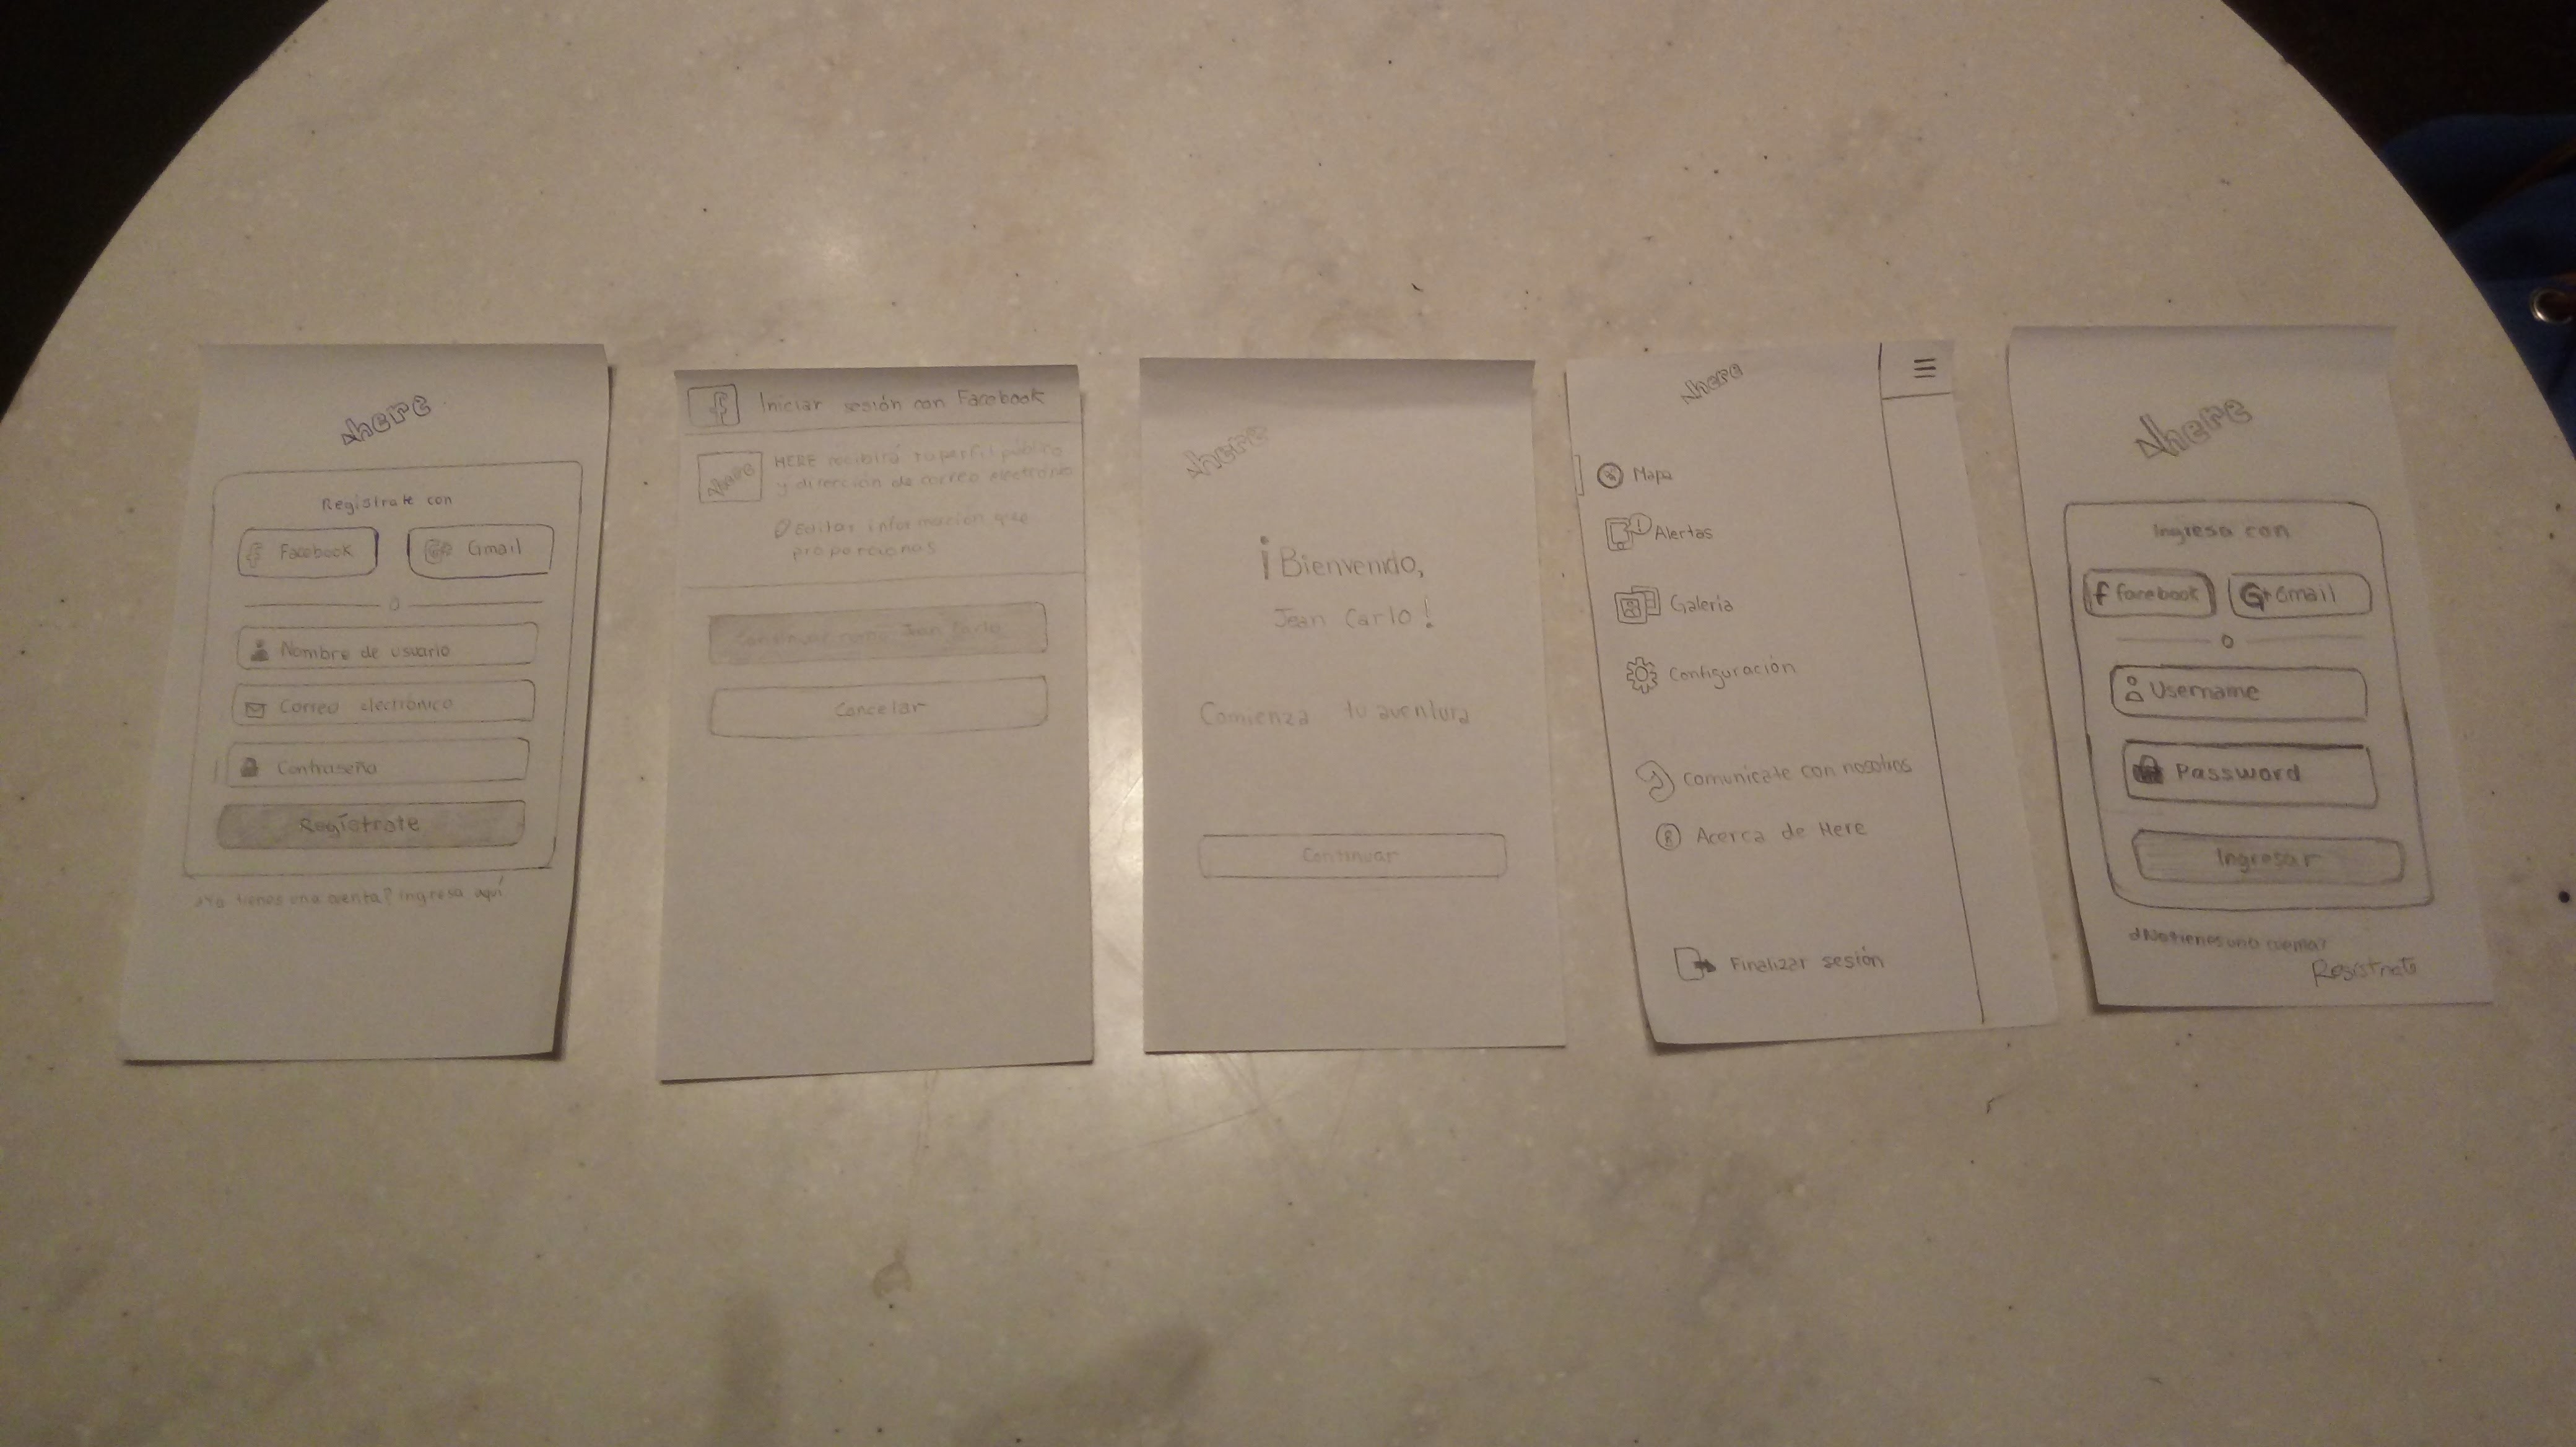 here
Regístrate con
Facebook
Gmail
o
Nombre de usuario
Correo electrónico
Contraseña
Regístrate
¿Ya tienes una cuenta? ingresa aquí
Iniciar sesión con Facebook
here
HERE recibirá tu perfil público
y dirección de correo electrónico
Editar información que
proporcionas
Continuar como Jean Carlo
Cancelar
here
¡Bienvenido,
Jean Carlo!
Comienza tu aventura
Continuar
here
Mapa
Alertas
Galería
Configuración
Comunícate con nosotros
Acerca de Here
Finalizar sesión
here
Ingresa con
f facebook
G+ Gmail
o
Username
Password
Ingresar
¿No tienes una cuenta?
Regístrate